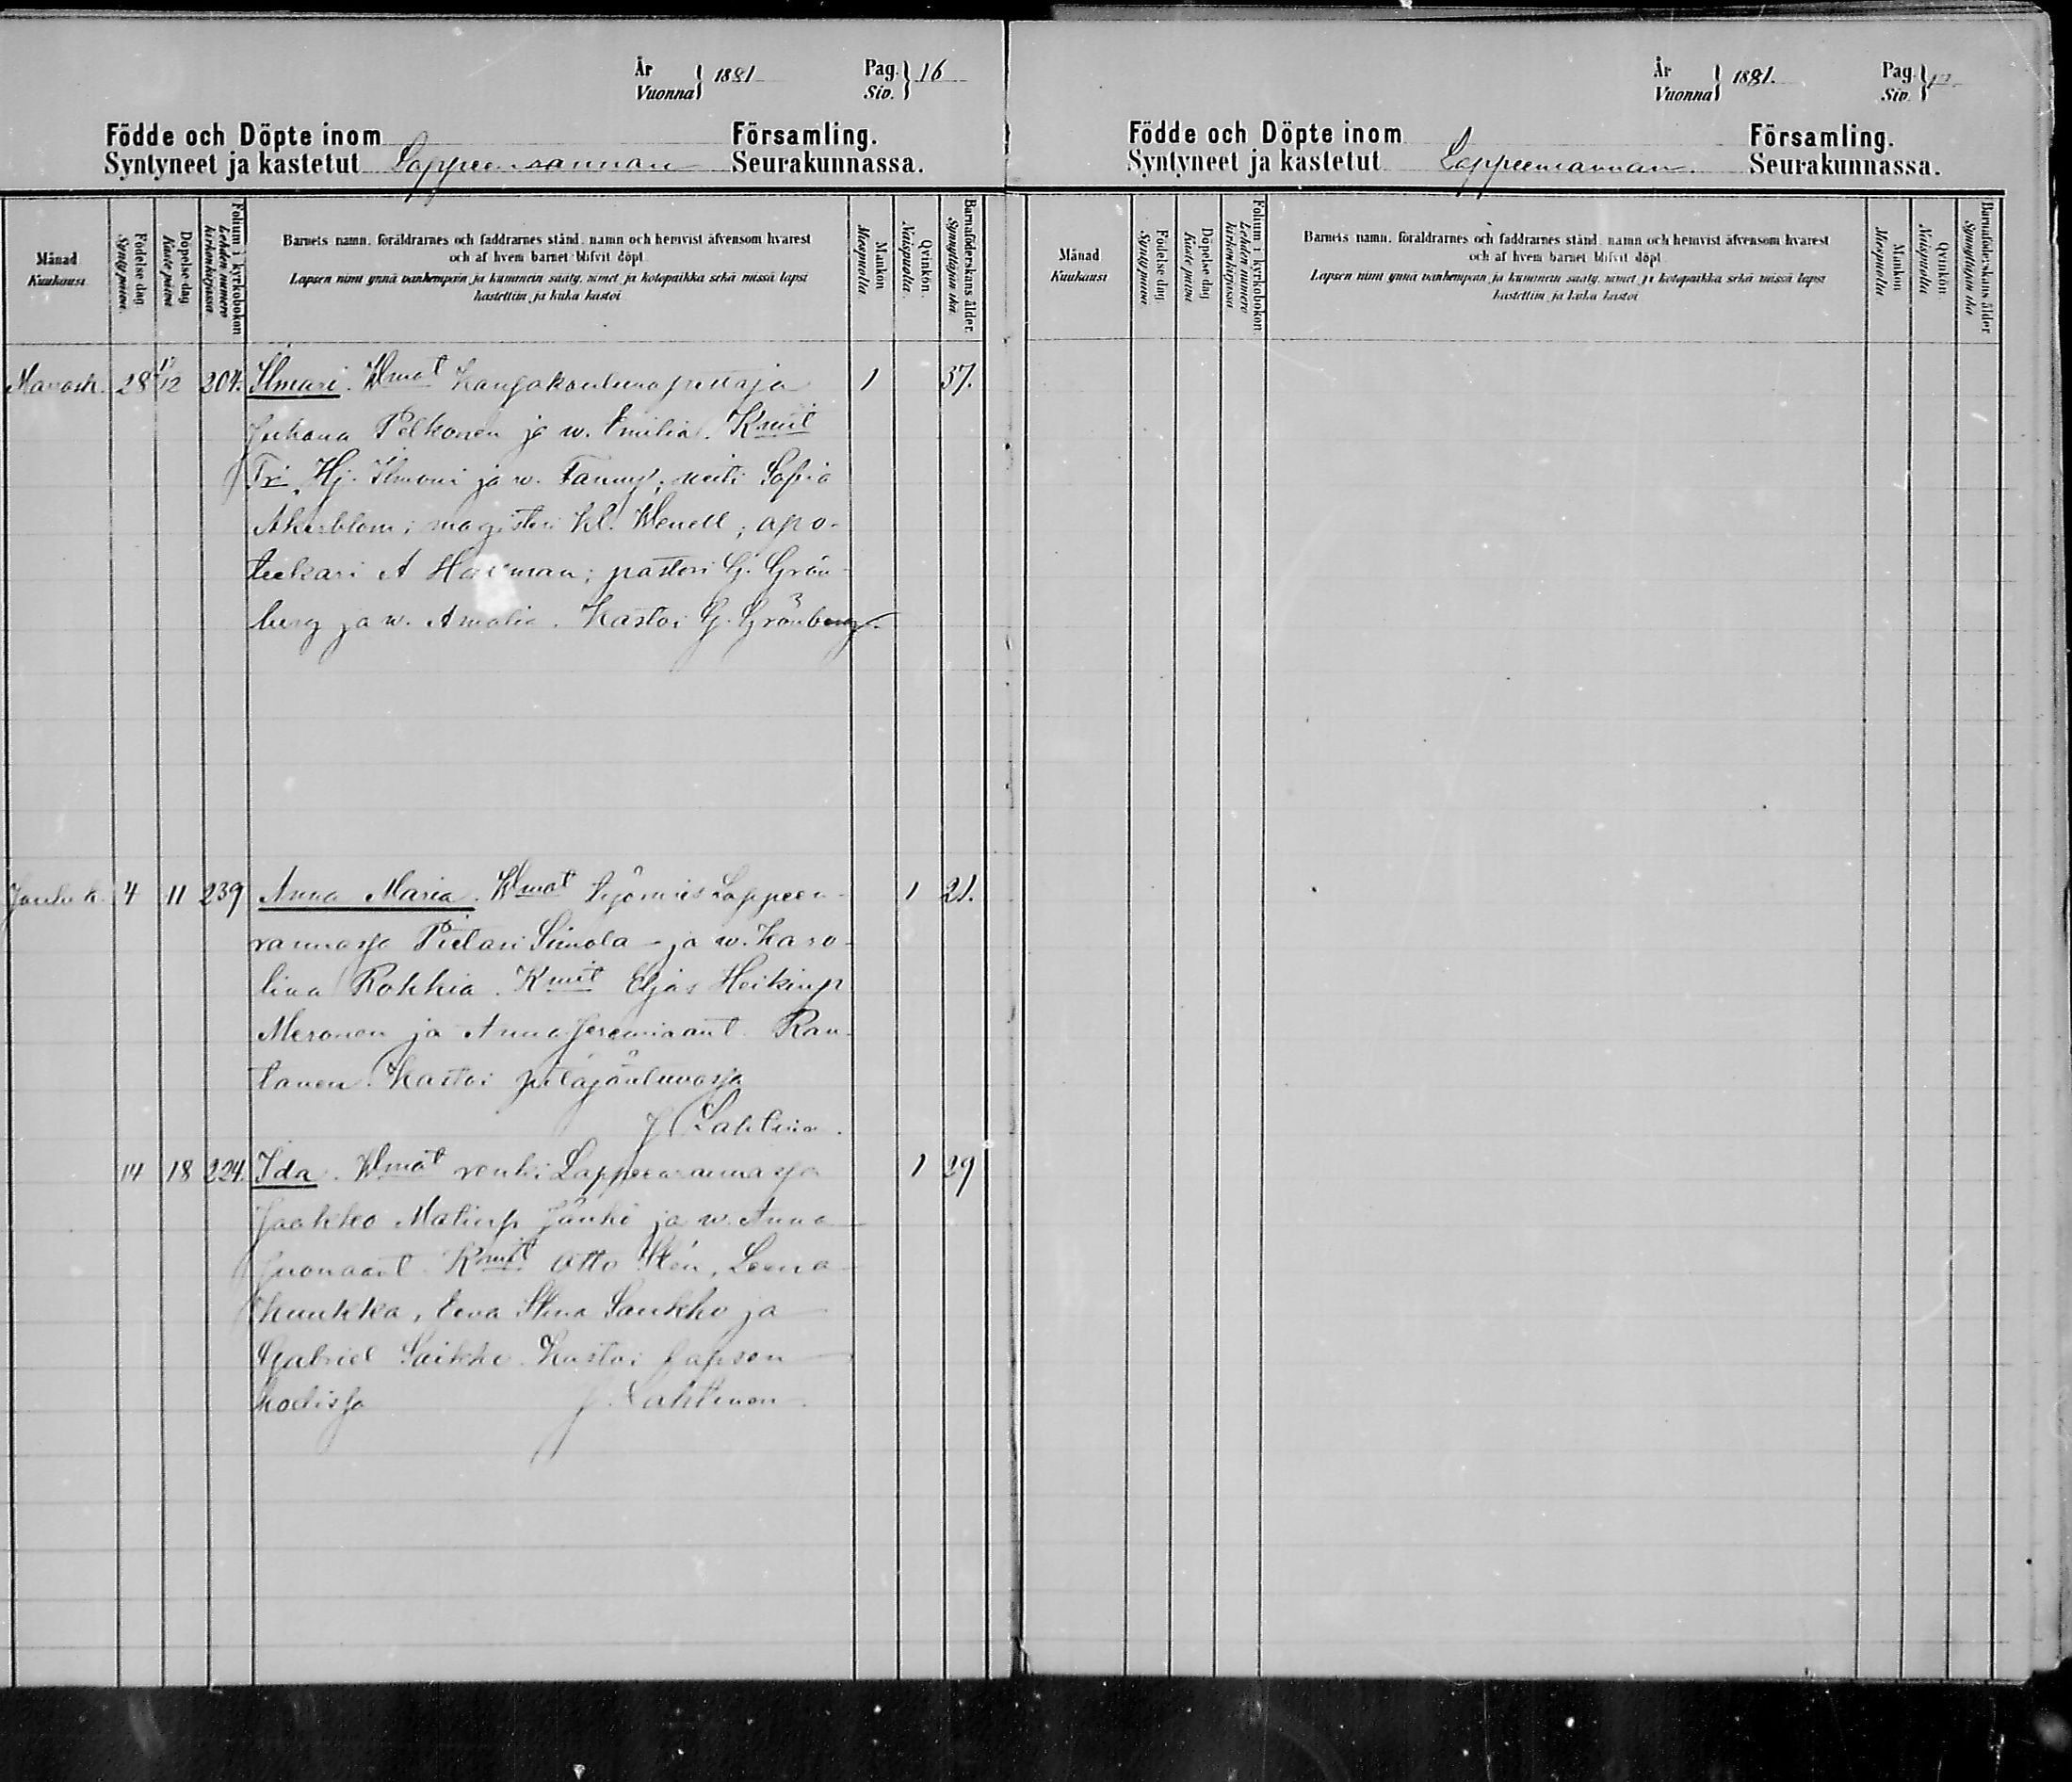 År
Vuonna } 1881 Pag.
Siv. } 16
Födde och Döpte inom Församling.
Syntyneet ja kastetut Lappeenrannan Seurakunnassa.
Månad
Kuukausi
Födelse dag
Synty päivä
Döpelse dag
Kaste päivä
Folium i kyrkobokon
Lehden numero kirkonkirjassa
Barnets namn, föräldrarnes och faddrarnes stånd, namn och hemvist äfvensom hvarest
och af hvem barnet blifvit döpt
Lapsen nimi ynnä vanhempain ja kummein sääty, nimet ja kotopaikka sekä missä lapsi
kastettiin ja kuka kastoi
Mankön
Miespuolia
Qvinkön
Naispuolia
Barnaföderskans ålder
Synnyttäjän ikä
Marrask. 28 1/12 204. Ilmari. Wmat Kansakoulunopettaja 1 37.
Juhana Pelkonen ja w. Emilia. Kmit
Tri Hj. Ilmoni ja w. Fanny; neiti Sofia
Åkerblom; magisteri Kl. Wenell; apo-
teekari A Harman; pastori G. Grön-
berg ja w. Amalia. Kastoi G. Grönberg.
Jouluk. 4 11 239 Anna Maria. Wmat työmies Lappeen- 1 21.
rannassa Pietari Simola ja w. Karo-
lina Rokkia. Kmit Eljas Heikinp
Meronen ja Anna Jeremiaant. Ran-
tanen. Kastoi pitäjäntuvassa
J Lahtinen.
14 18 224. Ida. Wmat renki Lappeenrannassa 1 29
Jaakko Matinp Jänki ja w. Anna
Juonaant. Kmit Otto Stén, Leena
Kuukka, Eeva Stina Saukko ja
Gabriel Saikko. Kastoi lapsen
kodissa J. Lahtinen.
År
Vuonna } 1881. Pag.
Siv. }
Födde och Döpte inom Församling.
Syntyneet ja kastetut Lappeenrannan. Seurakunnassa.
Månad
Kuukausi
Födelse dag
Synty päivä
Döpelse dag
Kaste päivä
Folium i kyrkobokon
Lehden numero kirkonkirjassa
Barnets namn, föräldrarnes och faddrarnes stånd, namn och hemvist äfvensom hvarest
och af hvem barnet blifvit döpt
Lapsen nimi ynnä vanhempain ja kummein sääty, nimet ja kotopaikka sekä missä lapsi
kastettiin ja kuka kastoi
Mankön
Miespuolia
Qvinkön
Naispuolia
Barnaföderskans ålder
Synnyttäjän ikä